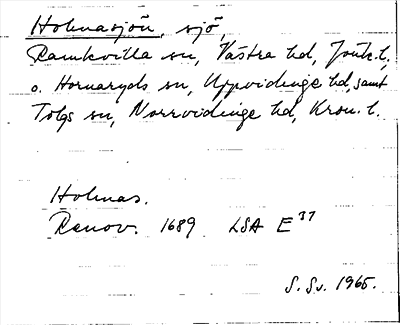 Holmasjön, sjö,
Ramkvilla sn, Västra hd, Jönk. l.,
o. Hornaryds sn, Uppvidinge hd, samt
Tolgs sn, Norrvidinge hd, Kron. l.
Holmas.
Renov. 1689 LSA E 37
S. Sv. 1965.